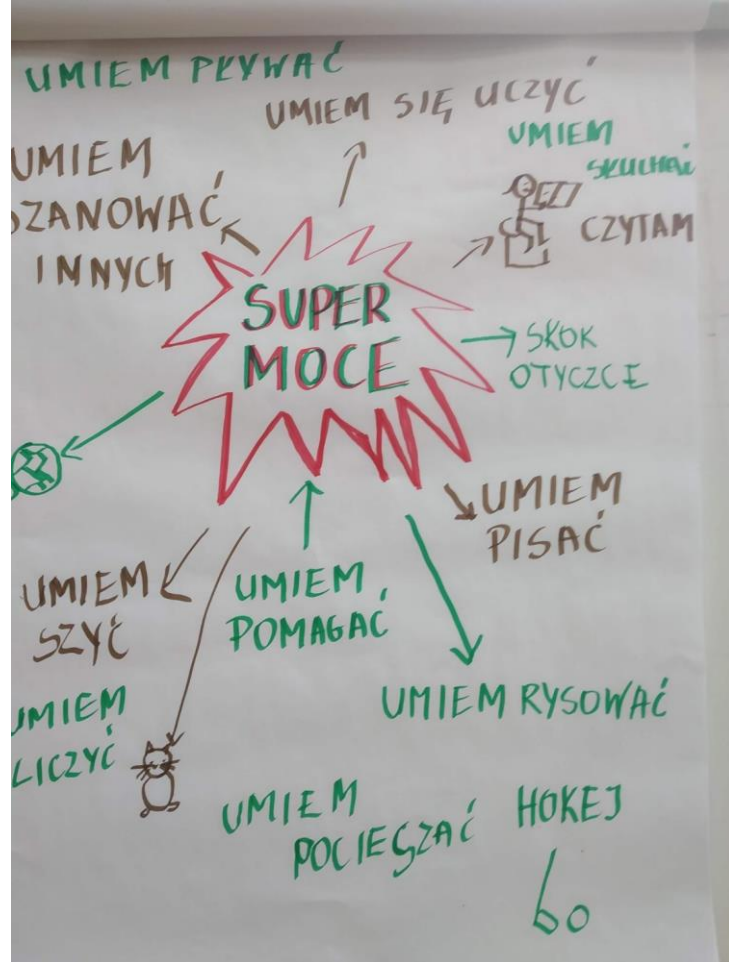 UMIEM PŁYWAĆ
UMIEM SIĘ UCZYĆ
UMIEM
SŁUCHAĆ
CZYTAM
UMIEM
SZANOWAĆ
INNYCH
SUPER
MOCE
SKOK
OTYCZCE
UMIEM
PISAĆ
UMIEM
SZYĆ
UMIEM
POMAGAĆ
UMIEM RYSOWAĆ
UMIEM
LICZYĆ
UMIEM
POCIESZAĆ
HOKEJ